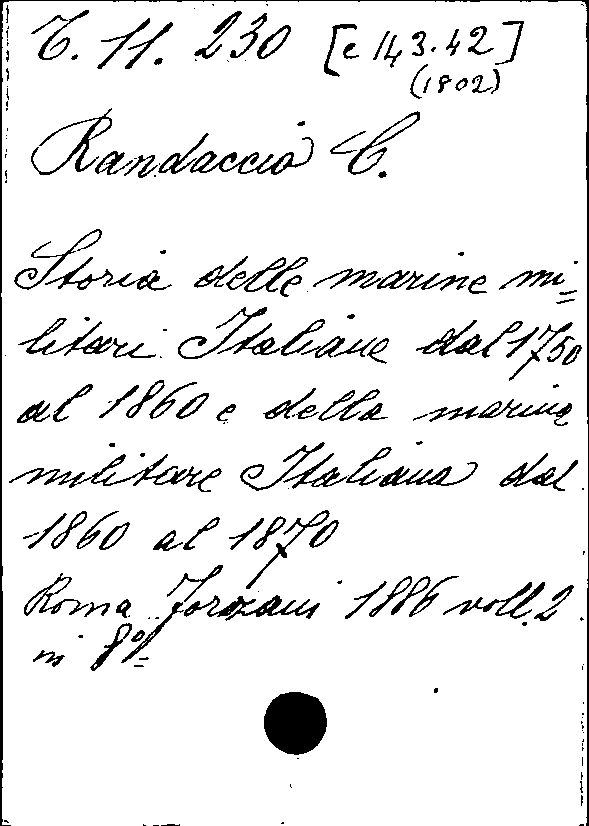 T. 11. 230 [c 143.42]
(1802)
Randaccio C.
Storia delle marine mi=
litari Italiane dal 1750
al 1860 e della marina
militare Italiana dal
1860 al 1870
Roma Forzani 1886 voll. 2
in 8º